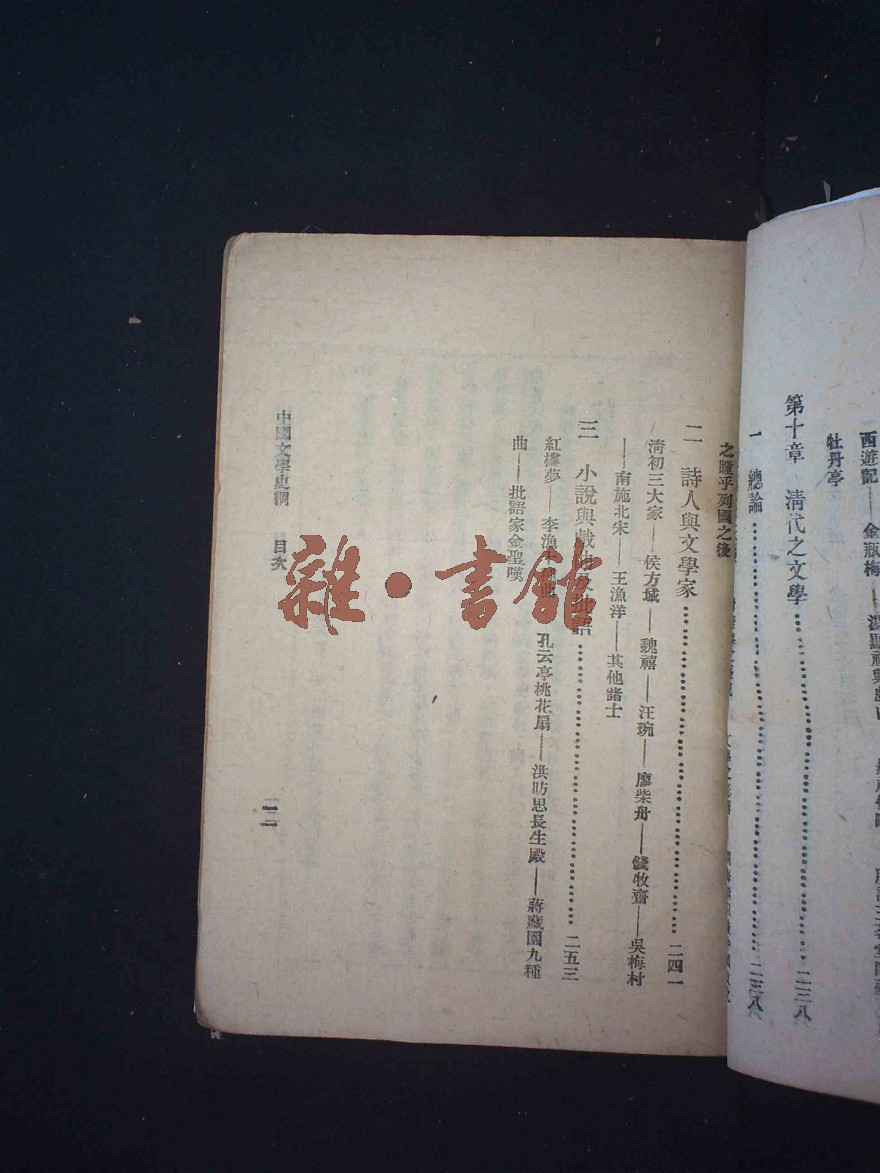 西遊記——金瓶梅——湯顯祖與戲曲
牡丹亭
第十章 清代之文學……二三八
一 總論……二三八
之瞠乎列國之後
二 詩人與文學家……二四一
淸初三大家——侯方域——魏禧——汪琬——廖柴舟——錢牧齋——吳梅村
——南施北宋——王漁洋——其他諸士
三 小說與戲曲及批語……二五三
紅樓夢——李漁 孔云亭桃花扇——洪昉思長生殿——蔣藏園九種
曲——批語家金聖嘆
中國文學史綱 目次
一二
雜·書館